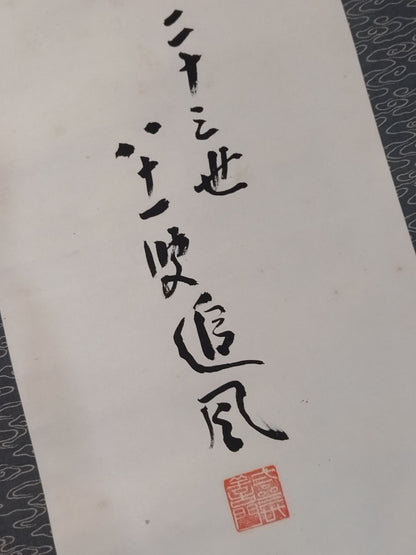 二十三世
八十一叟追風